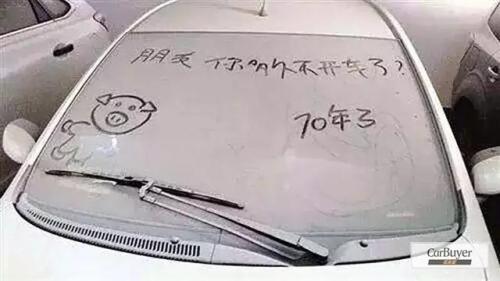 朋友 你多久不开车了?
10年了
CarBuyer